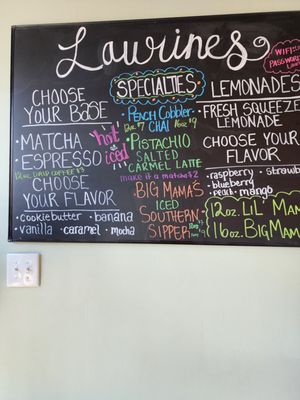 Lawrines
WIFI
PASSWORD
CHOOSE
YOUR BASE
• MATCHA
• ESPRESSO
hot
iced
12oz DRIP COFFEE $3
CHOOSE
YOUR FLAVOR
• cookie butter • banana
• vanilla • caramel • mocha
SPECIALTIES
• PEACH Cobbler
CHAI
12oz $7
16oz $9
• PISTACHIO
SALTED
CARMEL LATTE
make it a matcha $2
• BIG MAMA'S
ICED
SOUTHERN
SIPPER
LEMONADES
FRESH SQUEEZE
LEMONADE
CHOOSE YOUR
FLAVOR
• raspberry • strawb
• blueberry
• peach • mango
12oz. LIL' MAM
16oz. BIG MAM